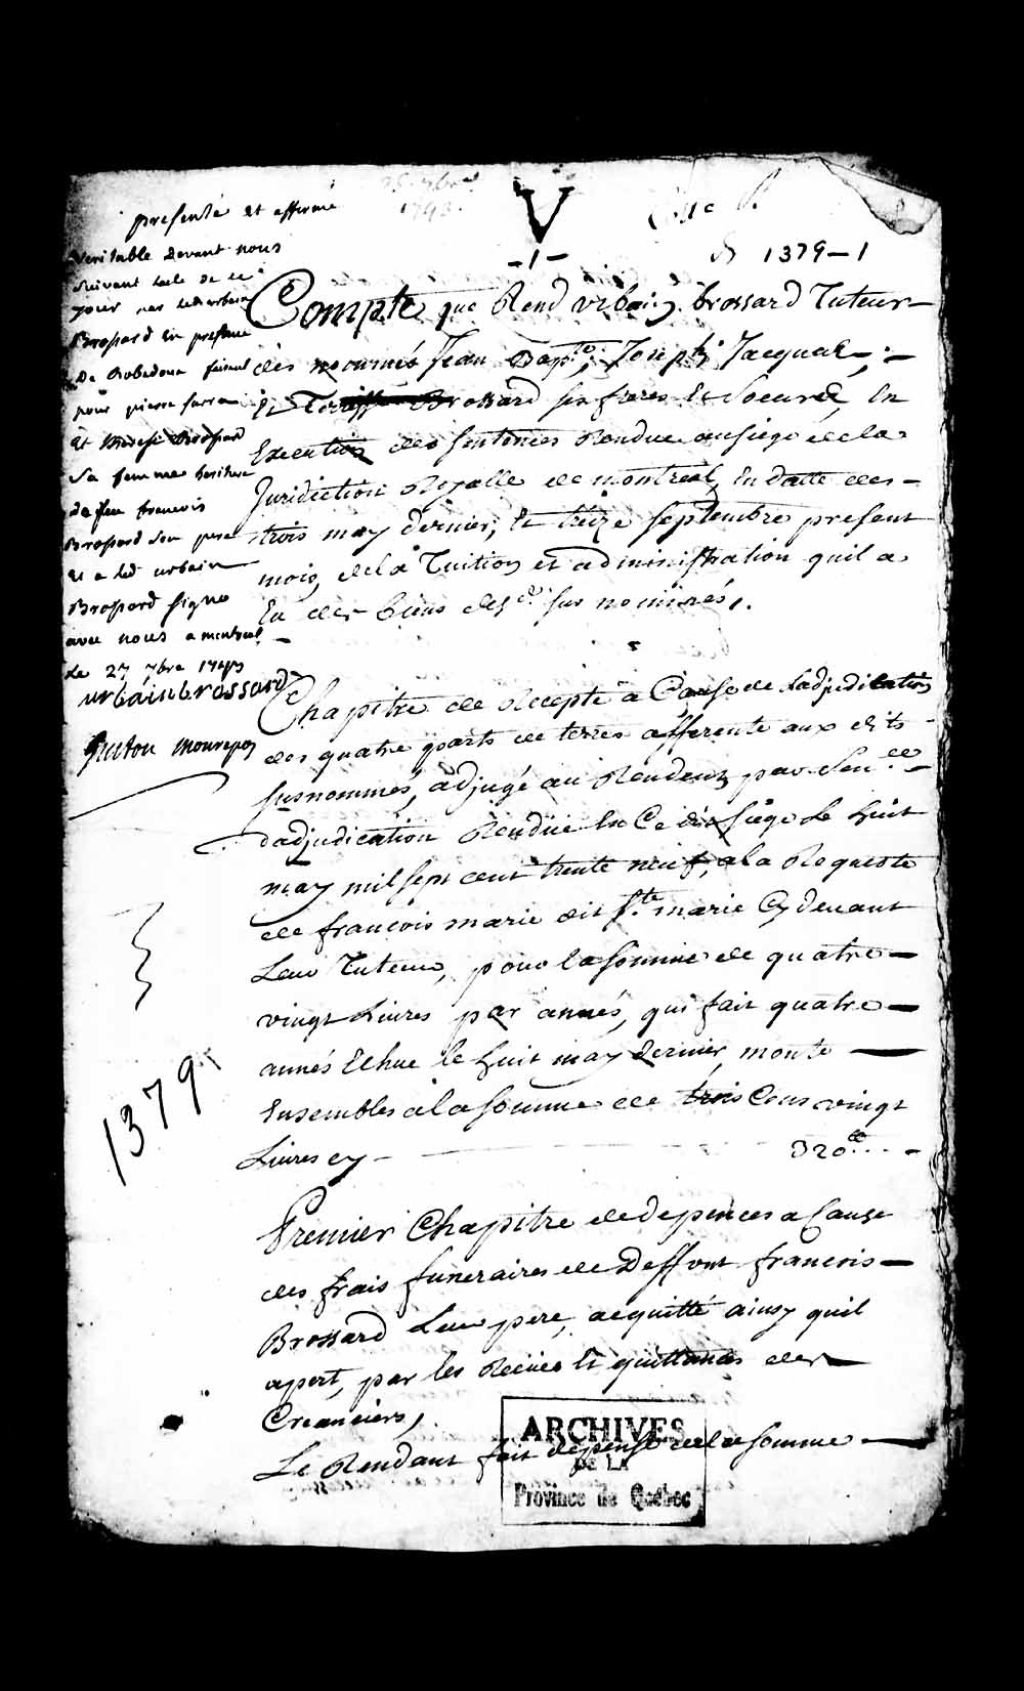 25 7bre
1743
V
- 1 -
N 1379 - 1
presenté et affirmé
veritable devant nous
suivant lacte de ce
jour par led urbain
Brossard en presence
De
pour pierre
et Brossard
Sa femme heritiere
de feu francois
Brossard Son pere
et a led urbain
Brossard signé
avec nous a montreal
Le 27 7bre 1743
urbain brossard
Guiton Monrepos
1379
Compte que Rend urbain brossard Tuteur
des nommés Jean Bapte, Joseph, Jacques,
Brossard ses freres Et Soeurs, En
Execution des sentences Rendue au siege de la
Juridiction Royalle de montreal, En datte des
trois may dernier, Et treize septembre present
mois, de la Tuition et administration quil a
Eu des biens desd. sus nommés,.
Chapitre de Recepte a Cause de Ladjudication
des quatre parts de terres afferente aux dits
susnommés, adjugé au Rendant par Sence
dadjudication Rendüe En Ce dit siege Le huit
may mil sept cent trente neuf, a la Requeste
de francois marie dit Ste marie Cy devant
Leur Tuteur, pour la somme de quatre
vingt Livres par année, qui fait quatre
années Echue le huit may dernier, monte
Ensembles a la somme de trois Cens vingt
Livres cy - 320
Premier Chapitre de depences a Cause
des frais funeraires de Deffunt francois
Brossard Leur pere, acquitté ainsy quil
apert, par les Recües Et quittances des
Creanciers,
Le Rendant fait depense de la somme
ARCHIVES
DE LA
Province de Québec